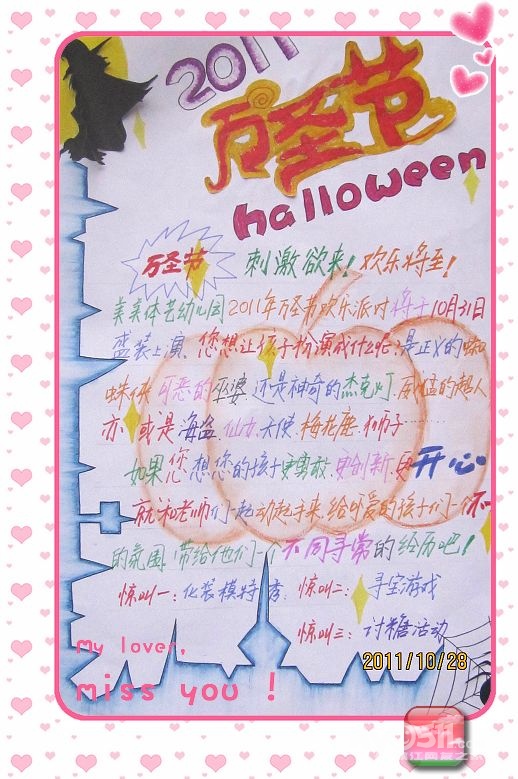 2011
万圣节
halloween
万圣节 刺激欲来！欢乐将至！
美美体艺幼儿园2011年万圣节欢乐派对将于10月31日
盛装上演、您想让孩子扮演成什么呢？是正义的蜘
蛛侠 可恶的巫婆、还是神奇的杰克灯、威猛的超人
亦或是海盗、仙女、天使、梅花鹿、狮子……
如果您想您的孩子更勇敢、更创新、更开心
就和老师们一起动起手来、给可爱的孩子们一个不一
的氛围、带给他们一个不同寻常的经历吧！
惊叫一：化装模特秀； 惊叫二： 寻宝游戏
惊叫三： 讨糖活动
My lover,
miss you !
2011/10/28